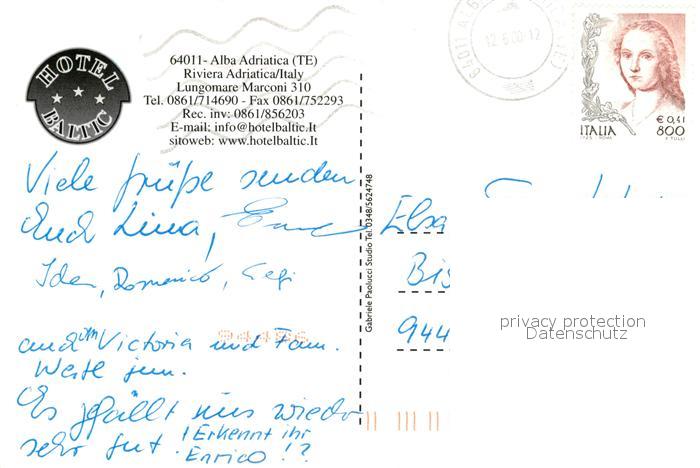 HOTEL
BALTIC
64011- Alba Adriatica (TE)
Riviera Adriatica/Italy
Lungomare Marconi 310
Tel. 0861/714690 - Fax 0861/752293
Rec. inv: 0861/856203
E-mail: info@hotelbaltic.It
sitoweb: www.hotelbaltic.It
Viele Grüße senden
Euch Lina,
Ida, Domenico,
auch von Victoria und Fam.
Weste jun.
Es gfällt uns wieder
sehr gut. !Erkennt ihr
Enrico!?
Gabriele Paolucci Studio Tel. 0348/5624748
64011
12.6.00-12
€ 0,41
ITALIA 800
Elsa
Bis
944
privacy protection
Datenschutz